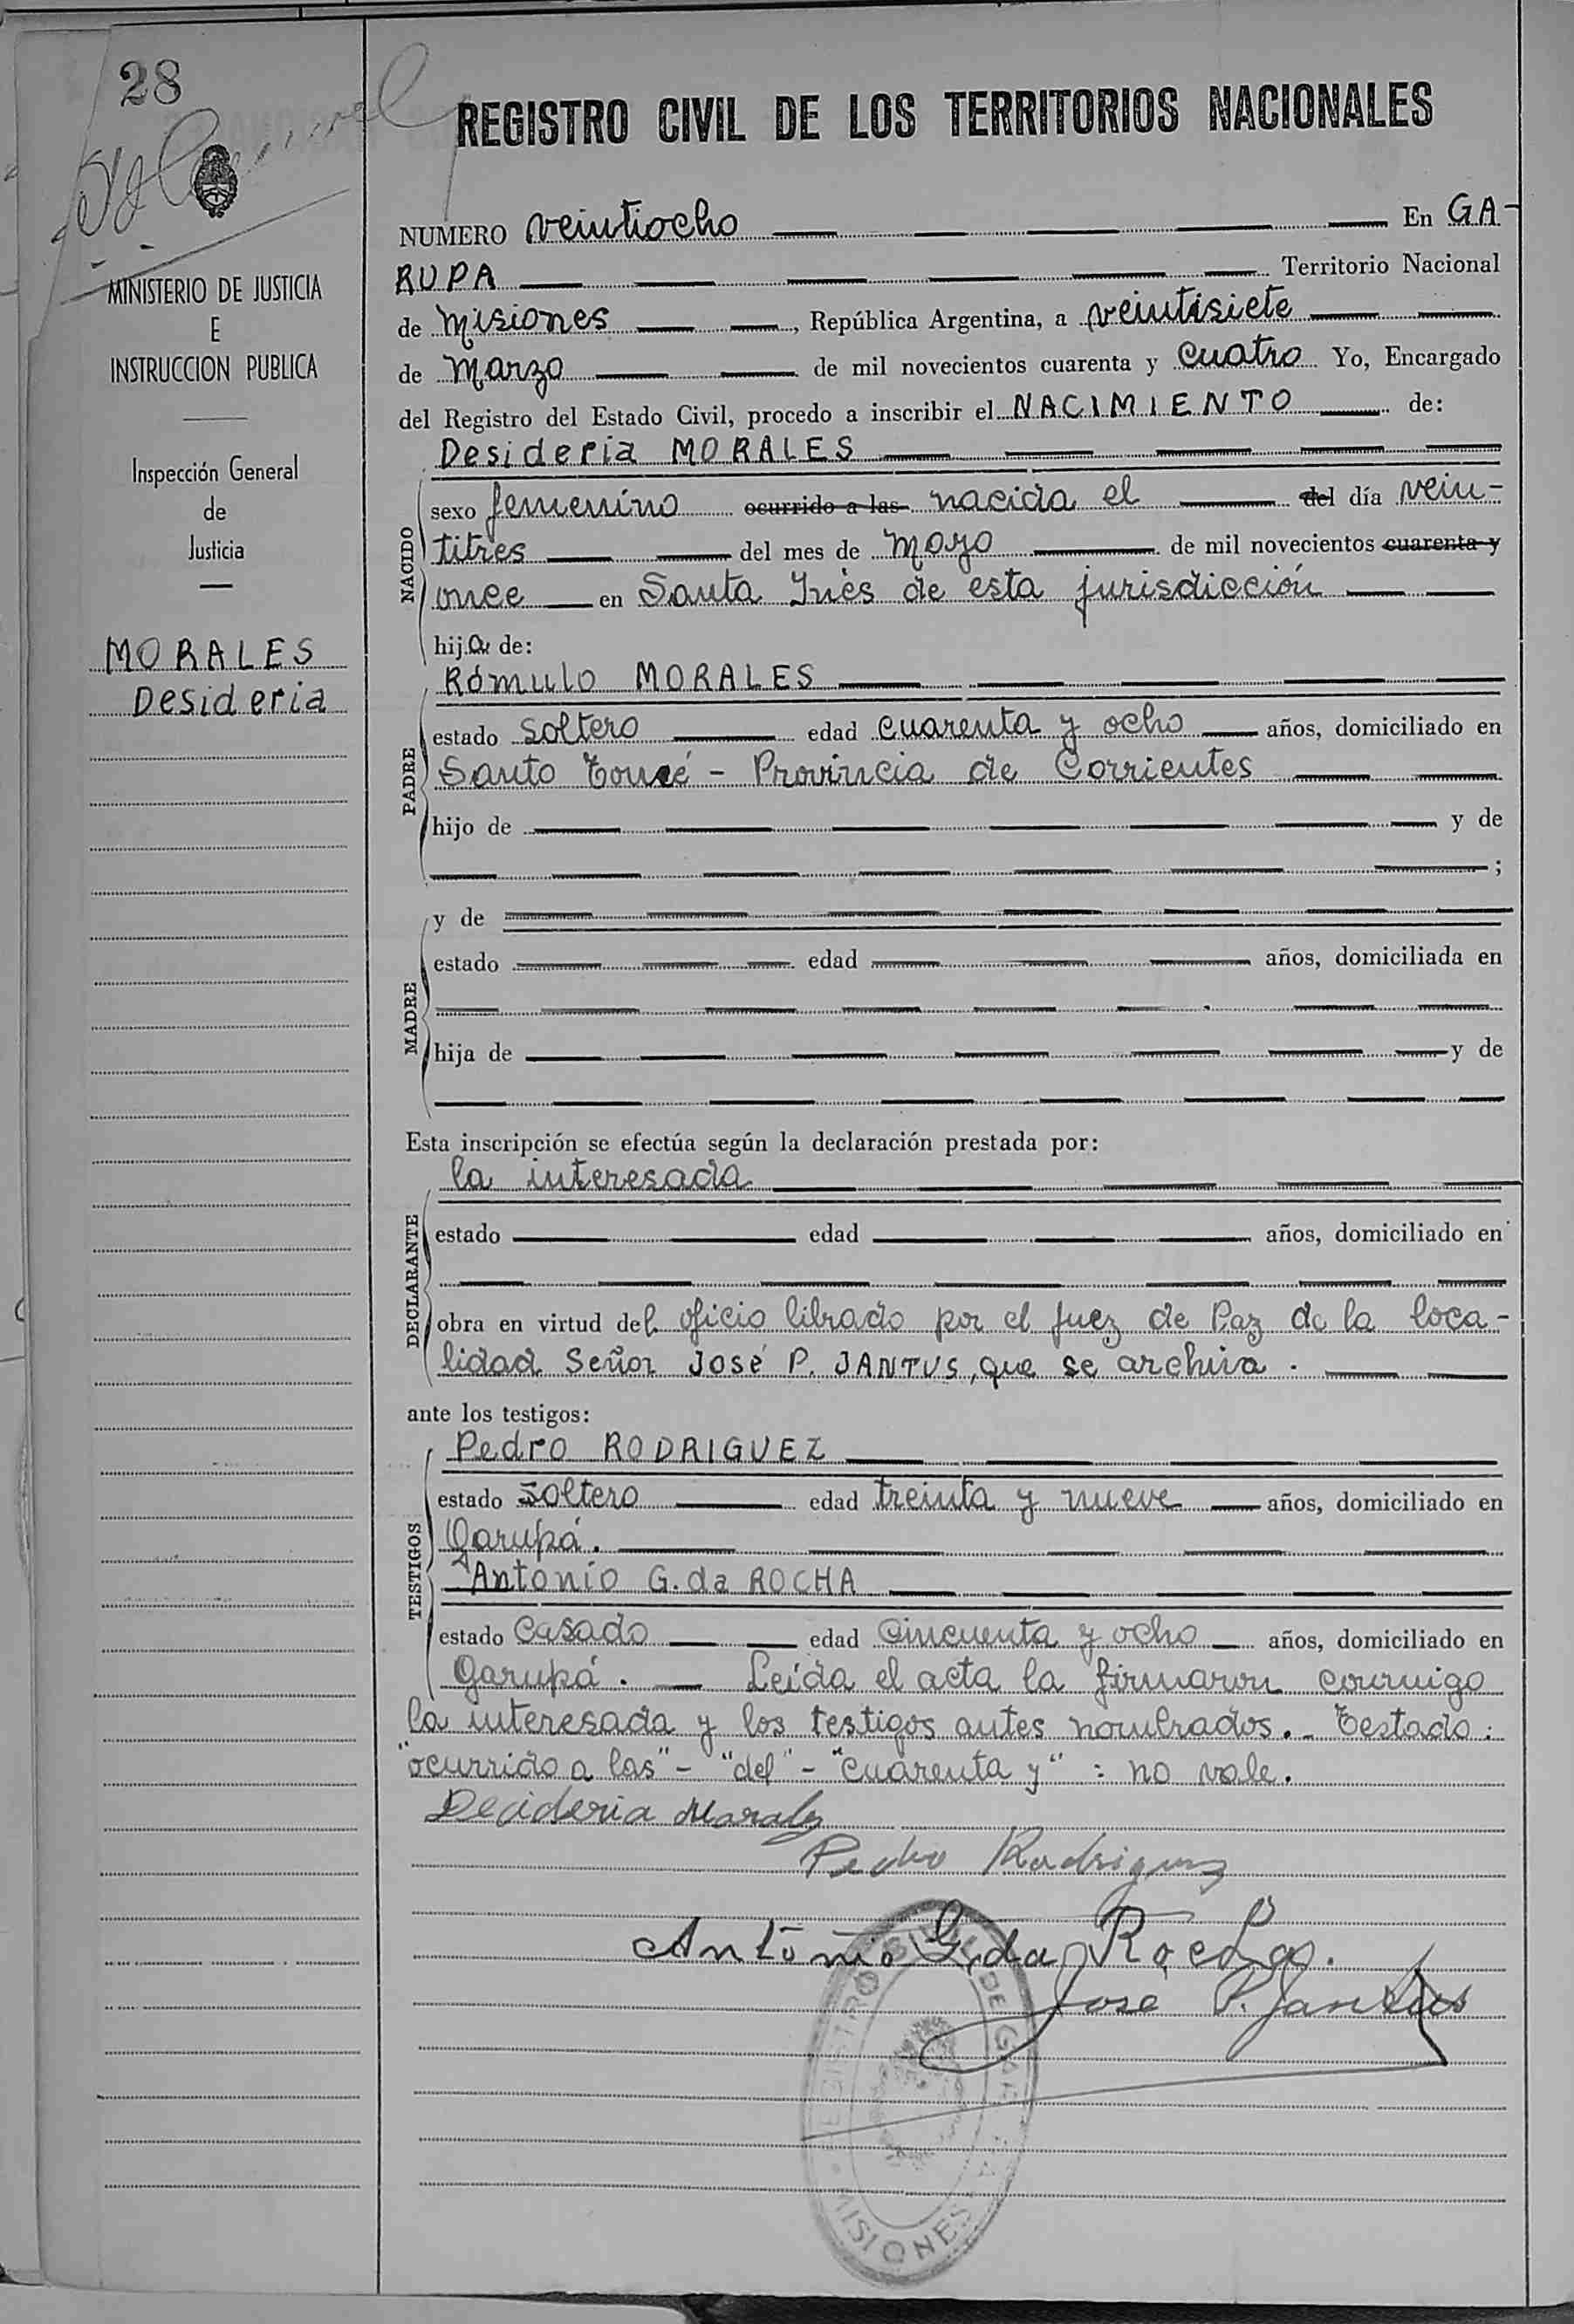 28
REGISTRO CIVIL DE LOS TERRITORIOS NACIONALES
MINISTERIO DE JUSTICIA
E
INSTRUCCION PUBLICA
Inspección General
de
Justicia
MORALES
Desideria
NUMERO veintiocho En GA-
RUPA Territorio Nacional
de Misiones, República Argentina, a veintisiete
de Marzo de mil novecientos cuarenta y cuatro Yo, Encargado
del Registro del Estado Civil, procedo a inscribir el NACIMIENTO de:
Desideria MORALES
NACIDO
sexo femenino ocurrido a las nacida el del día vein-
titres del mes de Mayo de mil novecientos cuarenta y
once en Santa Inés de esta jurisdicción
hija de:
Rómulo MORALES
PADRE
estado soltero edad cuarenta y ocho años, domiciliado en
Santo Tomé - Provincia de Corrientes
hijo de y de
;
MADRE
y de
estado edad años, domiciliada en
hija de y de
Esta inscripción se efectúa según la declaración prestada por:
la interesada
DECLARANTE
estado edad años, domiciliado en
obra en virtud del oficio librado por el Juez de Paz de la loca-
lidad Señor José P. JANTUS, que se archiva.
ante los testigos:
Pedro RODRIGUEZ
TESTIGOS
estado soltero edad treinta y nueve años, domiciliado en
Garupá.
Antonio G. da ROCHA
estado casado edad cincuenta y ocho años, domiciliado en
Garupá. Leída el acta la firmaron conmigo
la interesada y los testigos antes nombrados. - Testado:
"ocurrido a las" - "del" - "cuarenta y" : no vale.
Decideria Morales
Pedro Rodriguez
Antonio G. da Rocha.
Jose P. Jantus
REGISTRO CIVIL DE GARUPA
MISIONES